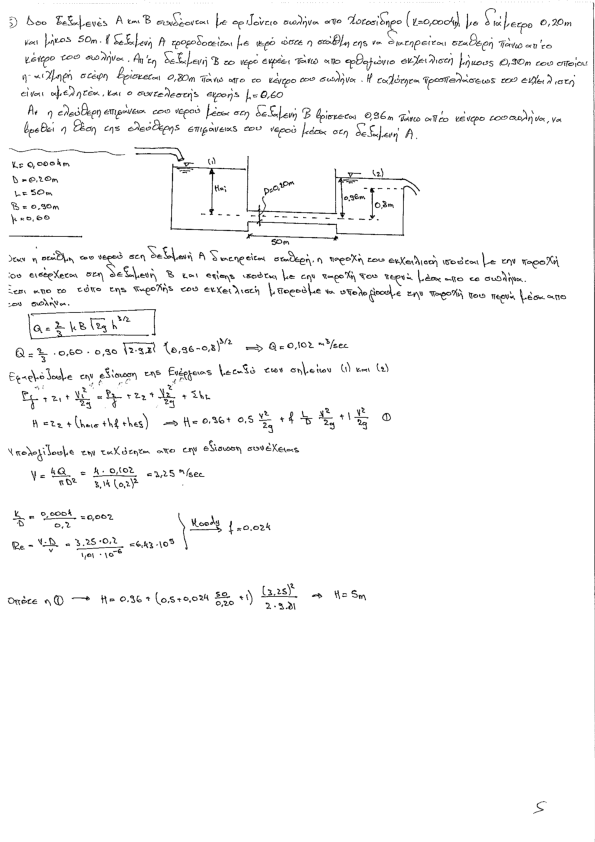 5) Δυο δεξαμενές Α και Β συνδέονται με οριζόντιο σωλήνα από χυτοσίδηρο (κ=0,0004m) με διάμετρο 0,20m
και μήκος 50m. Η δεξαμενή Α τροφοδοτείται με νερό ώστε η στάθμη της να διατηρείται σταθερή πάνω απ'το
κέντρο του σωλήνα. Απ'τη δεξαμενή Β το νερό εκρέει πάνω απο ορθογώνιο εκχειλιστή μήκους 0,90m του οποίου
η αιχμηρή στέψη βρίσκεται 0,80m πάνω απο το κέντρο του σωλήνα. Η ταχύτητα προσπελάσεως του εκχειλιστή
είναι αμελητέα, και ο συντελεστής εκροής μ=0,60
Αν η ελεύθερη επιφάνεια του νερού μέσα στη δεξαμενή Β βρίσκεται 0,96m πάνω από το κέντρο του σωλήνα, να
βρεθεί η θέση της ελεύθερης επιφάνειας του νερού μέσα στη δεξαμενή Α.
K = 0,0004m
D = 0,20m
L = 50m
B = 0,90m
μ = 0,60
(1)
(2)
D=0,20m
0,96m
0,8m
50m
η στάθμη του νερού στη δεξαμενή Α διατηρείται σταθερή, η παροχή του εκχειλιστή ισούται με την παροχή
που εισέρχεται στη δεξαμενή Β και επίσης ισούται με την παροχή που περνά μέσα απο το σωλήνα.
Έτσι απο το τύπο της παροχής του εκχειλιστή μπορούμε να υπολογίσουμε την παροχή που περνά μέσα απο
του σωλήνα.
Q = 2/3 μ B √2g h^3/2
Q = 2/3 · 0,60 · 0,90 √2·9,81 (0,96-0,8)^3/2 ⟹ Q = 0,102 m³/sec
Εφαρμόζουμε την εξίσωση της Ενέργειας μεταξύ των σημείων (1) και (2)
P₁/γ + z₁ + V₁²/2g = P₂/γ + z₂ + V₂²/2g + Σh_L
H = z₂ + (h + hf + h) ⟹ H = 0,96 + 0,5 V²/2g + f L/D V²/2g + 1 V²/2g ①
Υπολογίζουμε την ταχύτητα απο την εξίσωση συνέχειας
V = 4Q/πD² = 4 · 0,102/3,14 (0,2)² = 3,25 m/sec
K/D = 0,0004/0,2 = 0,002
Re = V·D/ν = 3,25 · 0,2/1,01 · 10^-6 = 6,43 · 10⁵
Moody → f = 0,024
Οπότε η ① → H = 0,96 + (0,5 + 0,024 50/0,20 + 1) (3,25)²/2·9,81 ⇒ H = 5m
5